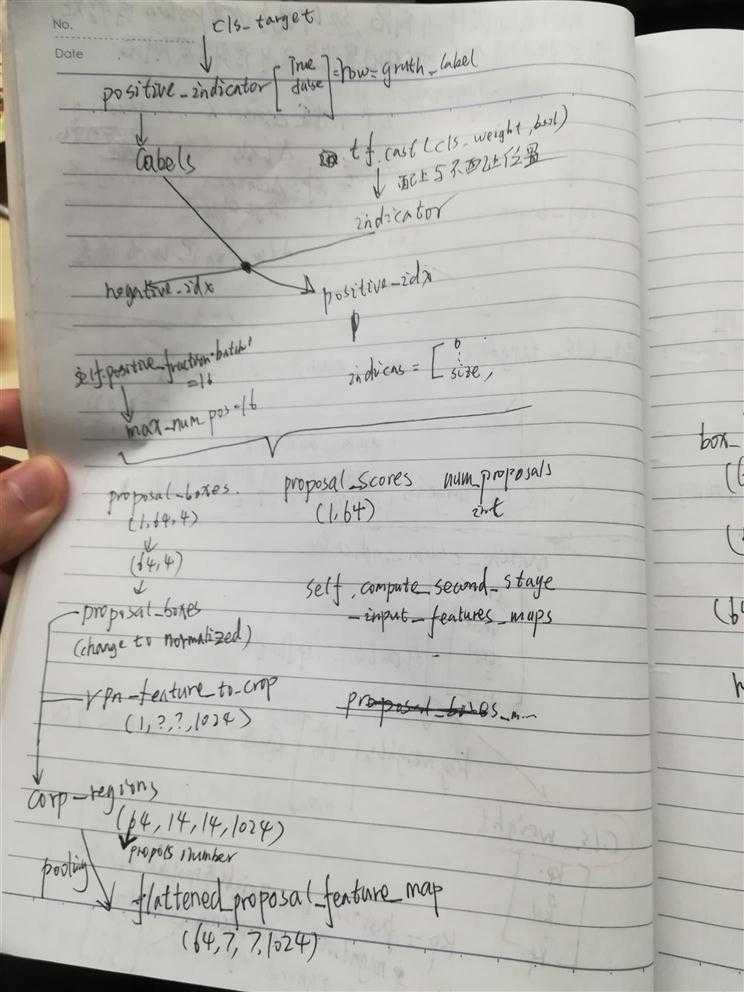 No.
Date
cls_target
positive_indicator [True false] = how = gruth_label
Labels
tf.cast(cls_weight, bool)
配上与不配上位置
indicator
negative_idx
positive_idx
self.positive_fraction*batch
=16
indicas = [0 ⋮ size,
max_num_pos=16
proposal_boxes.
(1,64,4)
proposal_scores
(1,64)
num_proposals
int
(64,4)
proposal_boxes
(change to normalized)
self.compute_second_stage
-input_features_maps
rpn_feature_to_crop
(1,?,?,1024)
corp_regions
(64,14,14,1024)
propols number
pooling
flattened_proposal_feature_map
(64,7,7,1024)
box_